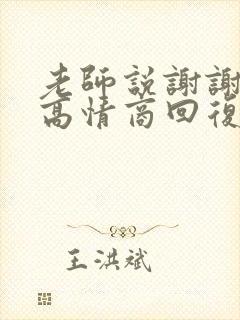 老師説謝謝
高情商回復
王洪斌